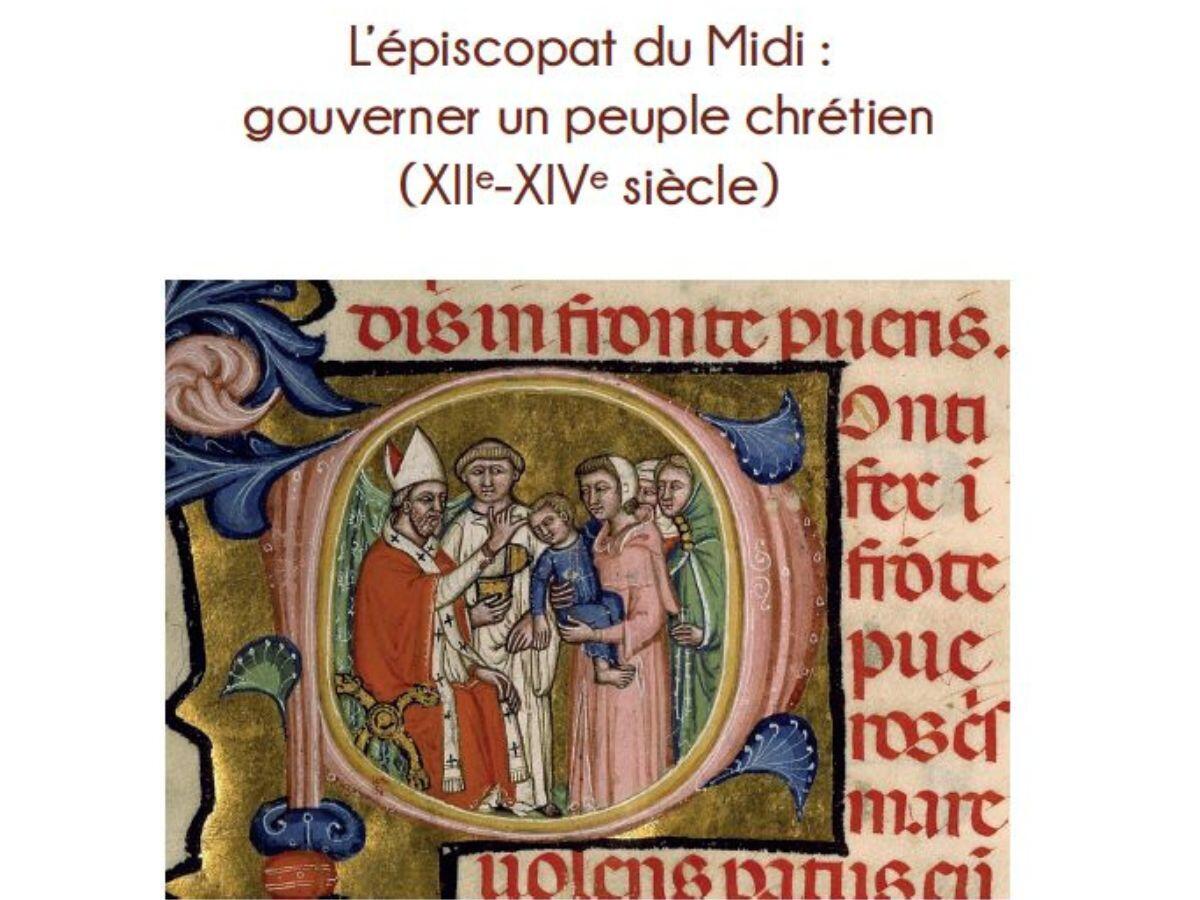 L'épiscopat du Midi :
gouverner un peuple chrétien
(XIIe-XIVe siècle)
dis in fronte pueris.
Onti
fex i
frōte
pue
ros cōs
mare
uolens patus cū